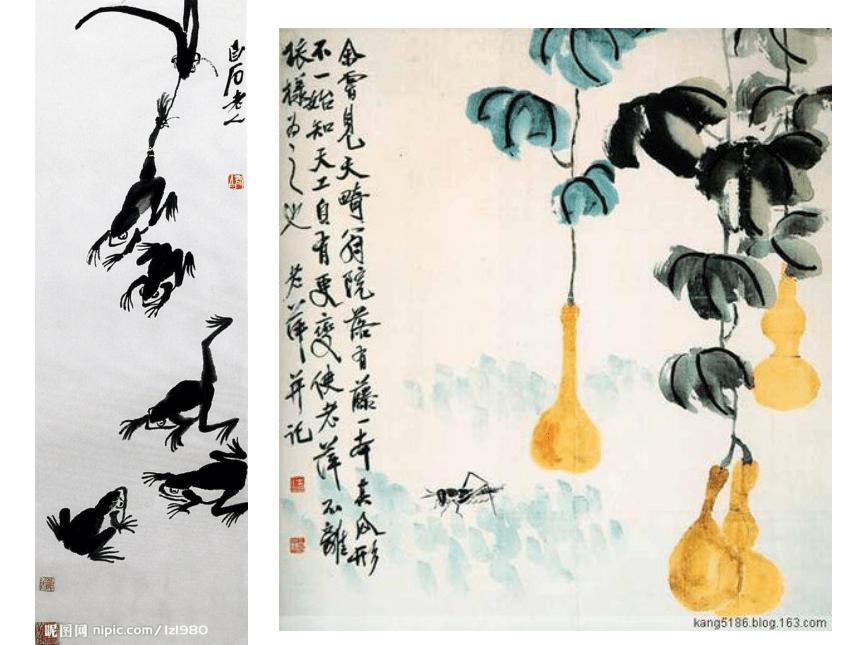 白石老人
昵图网 nipic.com/lzl980
余嘗見天畸翁院落有藤一本其瓜形
不一始知天工自有更變使老萍不離
依樣为之也 老萍并記
kang5186.blog.163.com